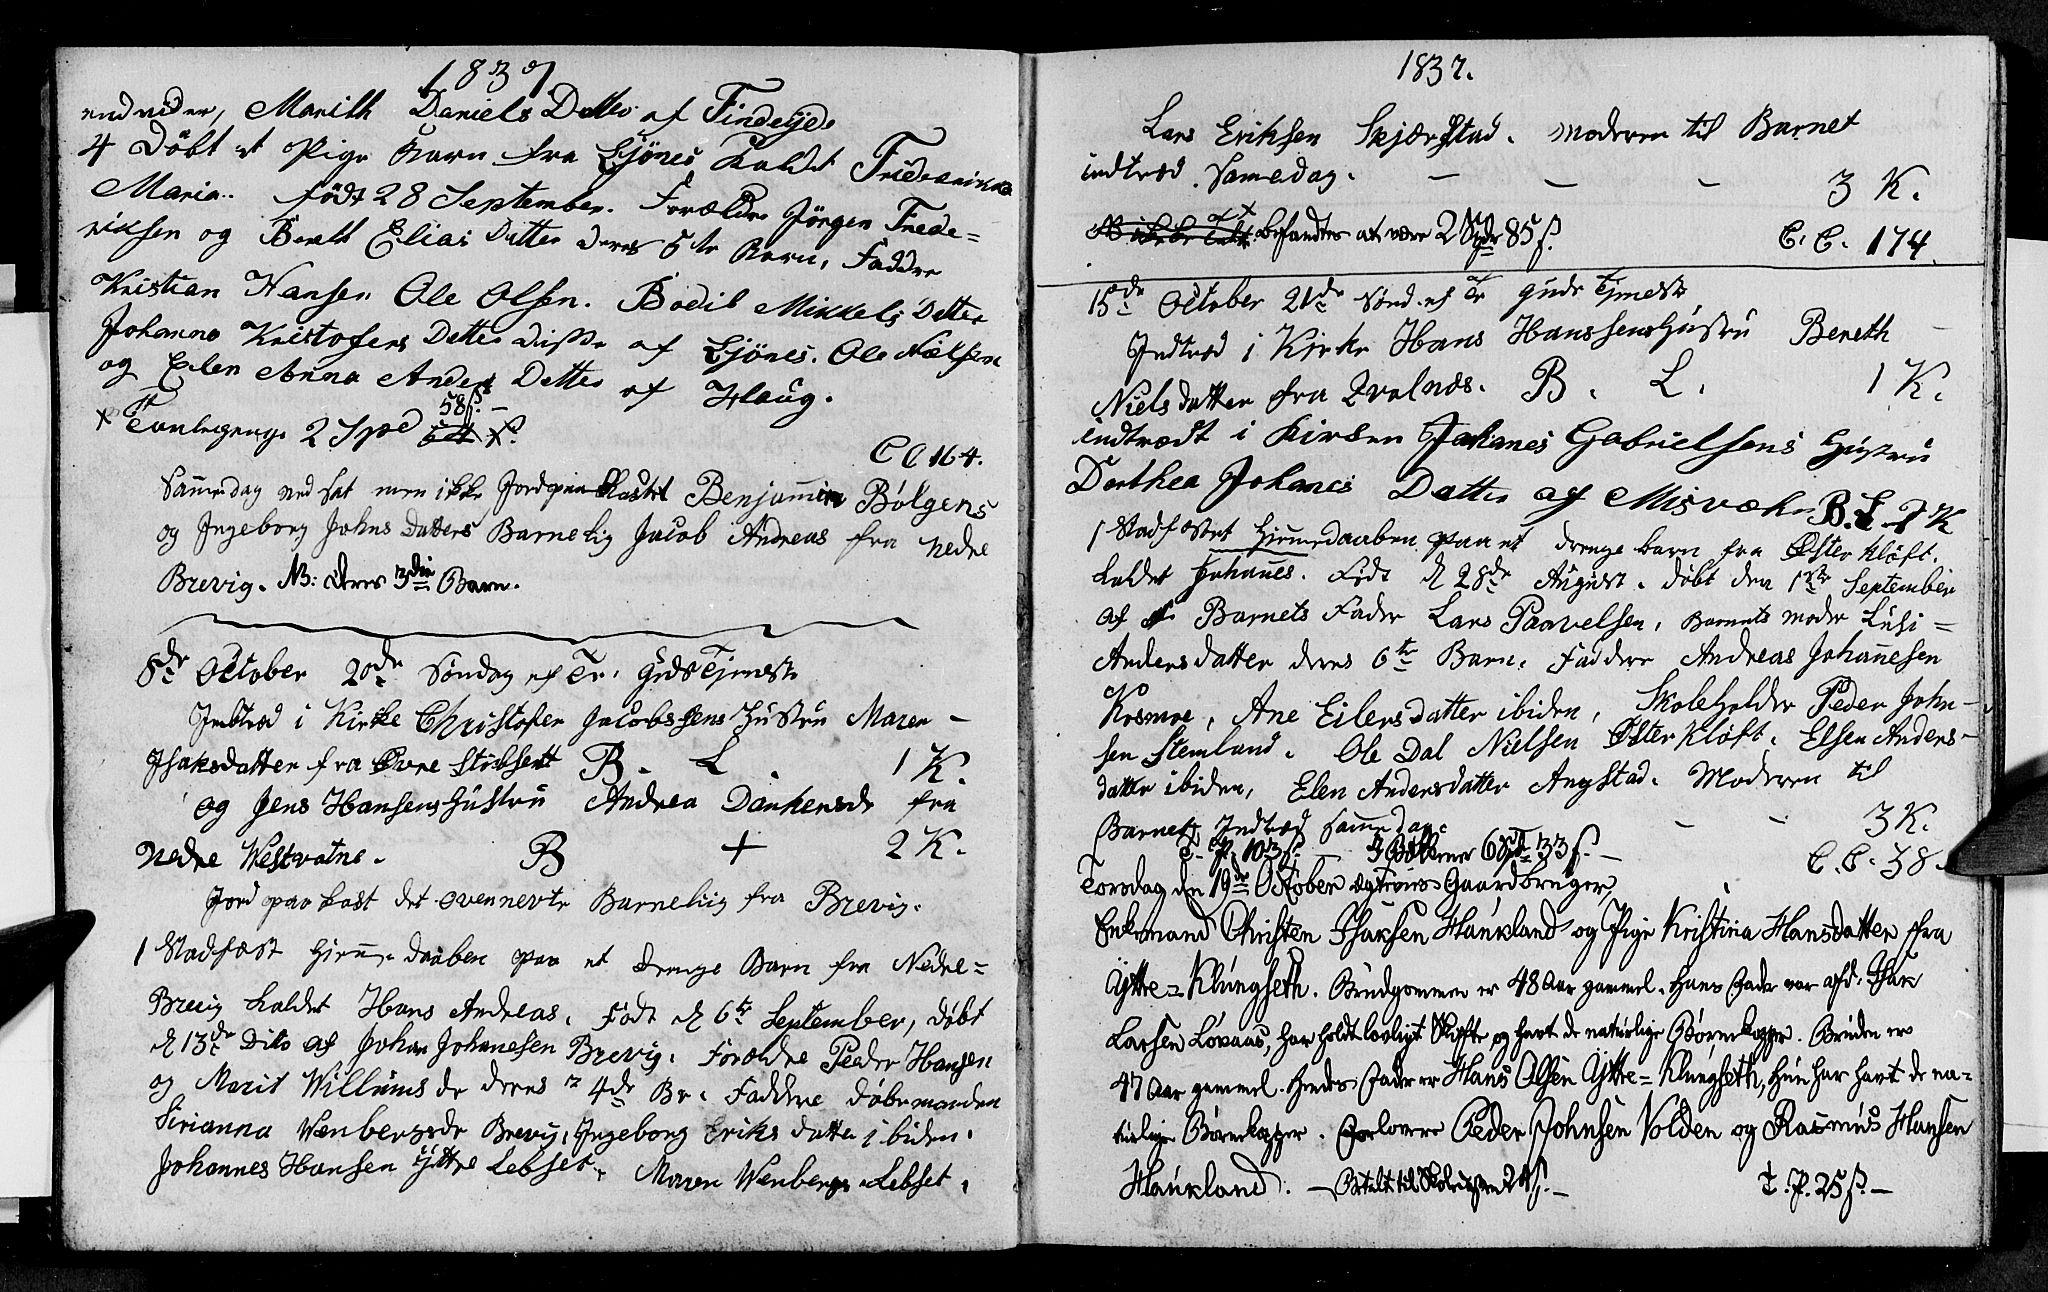 1837
endvider, Marith Daniels Datter af Findeyde
4 Döbt et Pige Barn fra Ljönes kaldt Friderikke
Maria. född 28 September. Forældre Jörgen Frede=
riksen og Bereth Elias Datter deres 5te Barn, Faddre
Kristian Hansen Ole Olsen. Bodil Mikkels Datter
Johanna Kristofers Datter disse af Ljönes. Ole Nielsen
og Elen Anna Anders Datter af Haug.
58 ſ. -
Tavlepenge 2 Spd
CC 164.
Sammedag ned sat men ikke Jordpaakastet Benjamin Bölgens
og Ingeborg Johns Datters Barnelig Jacob Andreas fra Nedre
Brevig. NB: deres 3die Barn.
8de October 20de Söndag ef Tr. Guds Tjeneste
Indtræd i Kirke Christofer Jacobssens Hustru Maren -
Isaksdatter fra Øvre B. L. 1 K.
og Jens Hansens Hustru Andrea Dankersdr fra
Nedre Westvatne. B + 2 K.
Jord paa kast det ovennevte Barneliig fra Brevig.
1 Stadfæst Hiemme daaben paa et Drenge Barn fra Nedre=
Brevig kaldet Hans Andreas. Född d 6te September, döbt
d 13de Dito af Johan Johanesen Brevig. Forældre Peder Hansen
og Marit Willumsdr deres 4de Br. Faddere döbemanden
Sirianna Wenbergsdr Brevig, Ingeborg Eriksdatter ibiden.
Johannes Hansen Yttre Lebset. Maren Wenbergs Lebset.
1837.
Lars Eriksen Skjærstad. Moderen til Barnet
indtræd. Samedag. - - - 3 K.
befandtes at være 2 Spdr 85 ſ. C. C. 174.
15de October 21de Sönd. ef Tr Guds Tjeneste
Indtræd i Kirke Hans Hanssens Hustru Bereth -
Nielsdatter fra Qvalnæs. B. L. 1 K.
indtrædt i Kirken Johanes Gabrielsens Hustru
Dorthea Johanes Datter af Misvæhr B. L. 2 K
1 Stadfæstet Hjemmedaaben paa et drenge barn fra Øster Klöft.
kaldet Johanes. Född d 28de August. döbt den 1ste September
af Barnets Fader Lars Paavelsen, Barnets moder Lusi=
Andersdatter deres 6te Barn. Faddere Andreas Johanesen
Kosmoe, Ane Eilersdatter ibiden, Skoleholder Peder John-
sen Stemland. Ole Dal Nielsen Øster Klöft. Elsen Anders-
datter ibiden, Elen Andersdatter Angstad. Moderen til
Barnet Indtræd samedag. - - 3 K.
T. P. 103 ſ. 6 Spd 33 ſ. - C. C. 38.
Torsdag den 19de October Gaardbruger,
Enkemand Christen Isaksen Haukland og Pige Kristina Hansdatter fra
Yttre=Klungseth. Brudgommen er 48 Aar gammel. Hans Fader var afd. Isak
Larsen Lövaas, har holdt lovligt Skifte og havt de naturlige Börnekopper. Bruden er
47 Aar gammel. Hendes Fader er Hans Olsen Yttre=Klungseth, Hun har havt de na=
turlige Börnekopper. Forlovere Peder Johnsen Volden og Rasmus Hansen
Haukland. - Betalt til Skolekassen 24 ſ. - T. P. 25 ſ. -